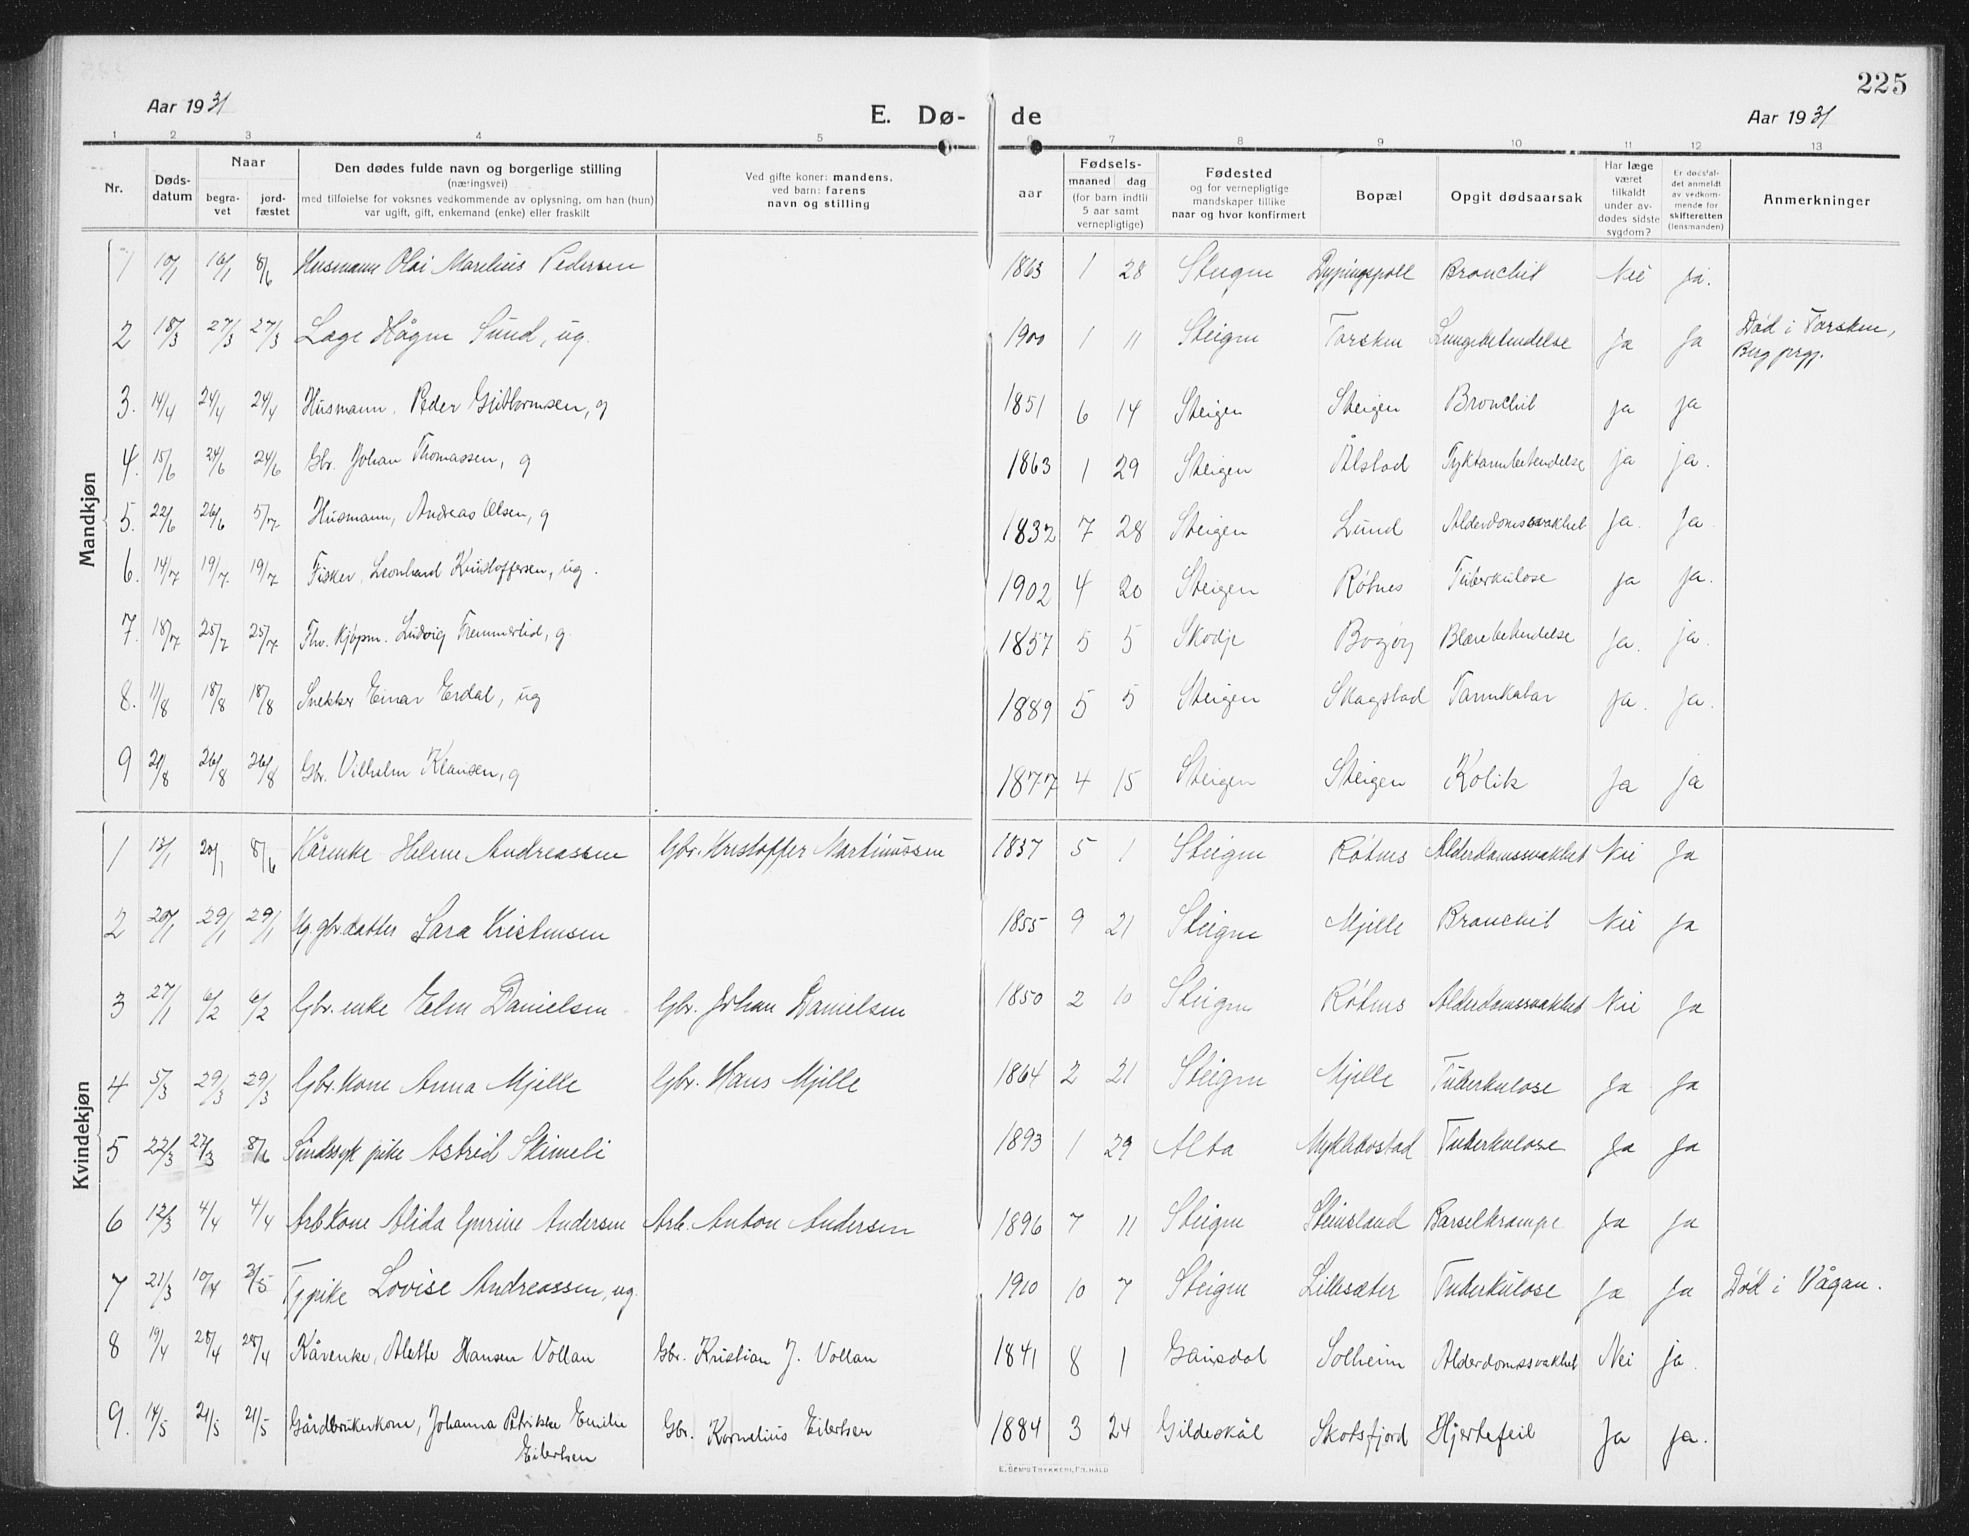 225
Aar 1931 E. Dø- de Aar 1931
1 2 3 4 5 6 7 8 9 10 11 12 13
Nr.
Døds-
datum
Naar
begra-
vet
jord-
fæstet
Den dødes fulde navn og borgerlige stilling
(næringsvei)
med tilføielse for voksnes vedkommende av oplysning, om han (hun)
var ugift, gift, enkemand (enke) eller fraskilt
Ved gifte koner: mandens,
ved barn: farens
navn og stilling
aar
Fødsels-
maaned dag
(for barn indtil
5 aar samt
vernepligtige)
Fødested
og for vernepligtige
mandskaper tillike
naar og hvor konfirmert
Bopæl
Opgit dødsaarsak
Har læge
været
tilkaldt
under av-
dødes sidste
sygdom?
Er dødsfal-
det anmeldt
av vedkom-
mende for
skifteretten
(lensmanden)
Anmerkninger
Mandkjøn
1 10/1 16/1 8/6 Husmann Olai Marelius Pedersen 1863 1 28 Steigen Dypingspoll Bronchit Nei ja.
2 18/3 27/3 27/3 Lage Hågen Sund, ug. 1900 1 11 Steigen Torsken Lungebetendelse Ja Ja Død i Torsken,
Berg prgj.
3. 14/4 24/4 24/4 Husmann, Peder Guthormsen, g 1851 6 14 Steigen Steigen Bronchit ja ja
4. 15/6 24/6 24/6 Gbr. Johan Thomassen, g 1863 1 29 Steigen Ålstad Tyktarmbetendelse ja ja.
5. 22/6 26/6 5/7 Husmann, Andreas Olsen, g 1832 7 28 Steigen Lund Alderdomssvakhet ja. Ja.
6. 14/7 19/7 19/7 Fisker, Leonhard Kristoffersen, ug. 1902 4 20 Steigen Røtnes Tuberkulose ja ja.
7. 18/7 25/7 25/7 Fhv. kjøpm. Ludvig Tremmerlid, g. 1857 5 5 Skodje Bogøy Blærebetendelse Ja. ja.
8. 11/8 18/8 18/8 Snekker Einar Erdal, ug 1889 5 5 Steigen Skagstad Tarmkatar ja. Ja.
9 21/8 26/8 26/8 Gbr. Vilhelm Klausen, g 1877 4 15 Steigen Steigen Kolik Ja ja
Kvindekjøn
1 13/1 20/1 8/6 Kårenke Helene Andreassen Gbr. Kristoffer Martinussen 1837 5 1 Steigen Røtnes Alderdomssvakhet Nei Ja
2 20/1 29/1 29/1 Ug. gbr.datter Sara Kristensen 1855 9 21 Steigen Mjelle Bronchit Nei Ja
3 27/1 6/2 6/2 Gbr. enke Elen Danielsen Gbr. Johan Danielsen 1850 2 10 Steigen Røtnes Alderdomssvakhet Nei Ja
4 5/3 29/3 29/3 Gbr. kone Anna Mjelle Gbr. Hans Mjelle 1864 2 21 Steigen Mjelle Tuberkulose Ja Ja
5 22/3 27/3 8/6 Sindssyk pike Astrid Skimeli 1893 1 29 Alta Myklebostad Tuberkulose Ja Ja
6 12/3 4/4 4/4 Arb.kone Alida Gurine Andersen Arb. Anton Andersen 1896 7 11 Steigen Steinsland Barselkrampe Ja Ja
7 21/3 10/4 3/5 Tj.pike Lovise Andreassen, ug. 1910 10 7 Steigen Lillesæter Tuberkulose Ja Ja Død i Vågan.
8 19/4 28/4 28/4 Kårenke, Alette Hansen Vollan Gbr. Kristian J. Vollan 1841 8 1 Gausdal Solheim Alderdomssvakhet Nei ja.
9. 14/5 21/5 21/5 Gårdbrukerkone, Johanna Petrikke Emilie Gbr. Kornelius Eilertsen 1884 3 24 Gildeskål Skotsfjord Hjertefeil Ja ja.
Eilertsen